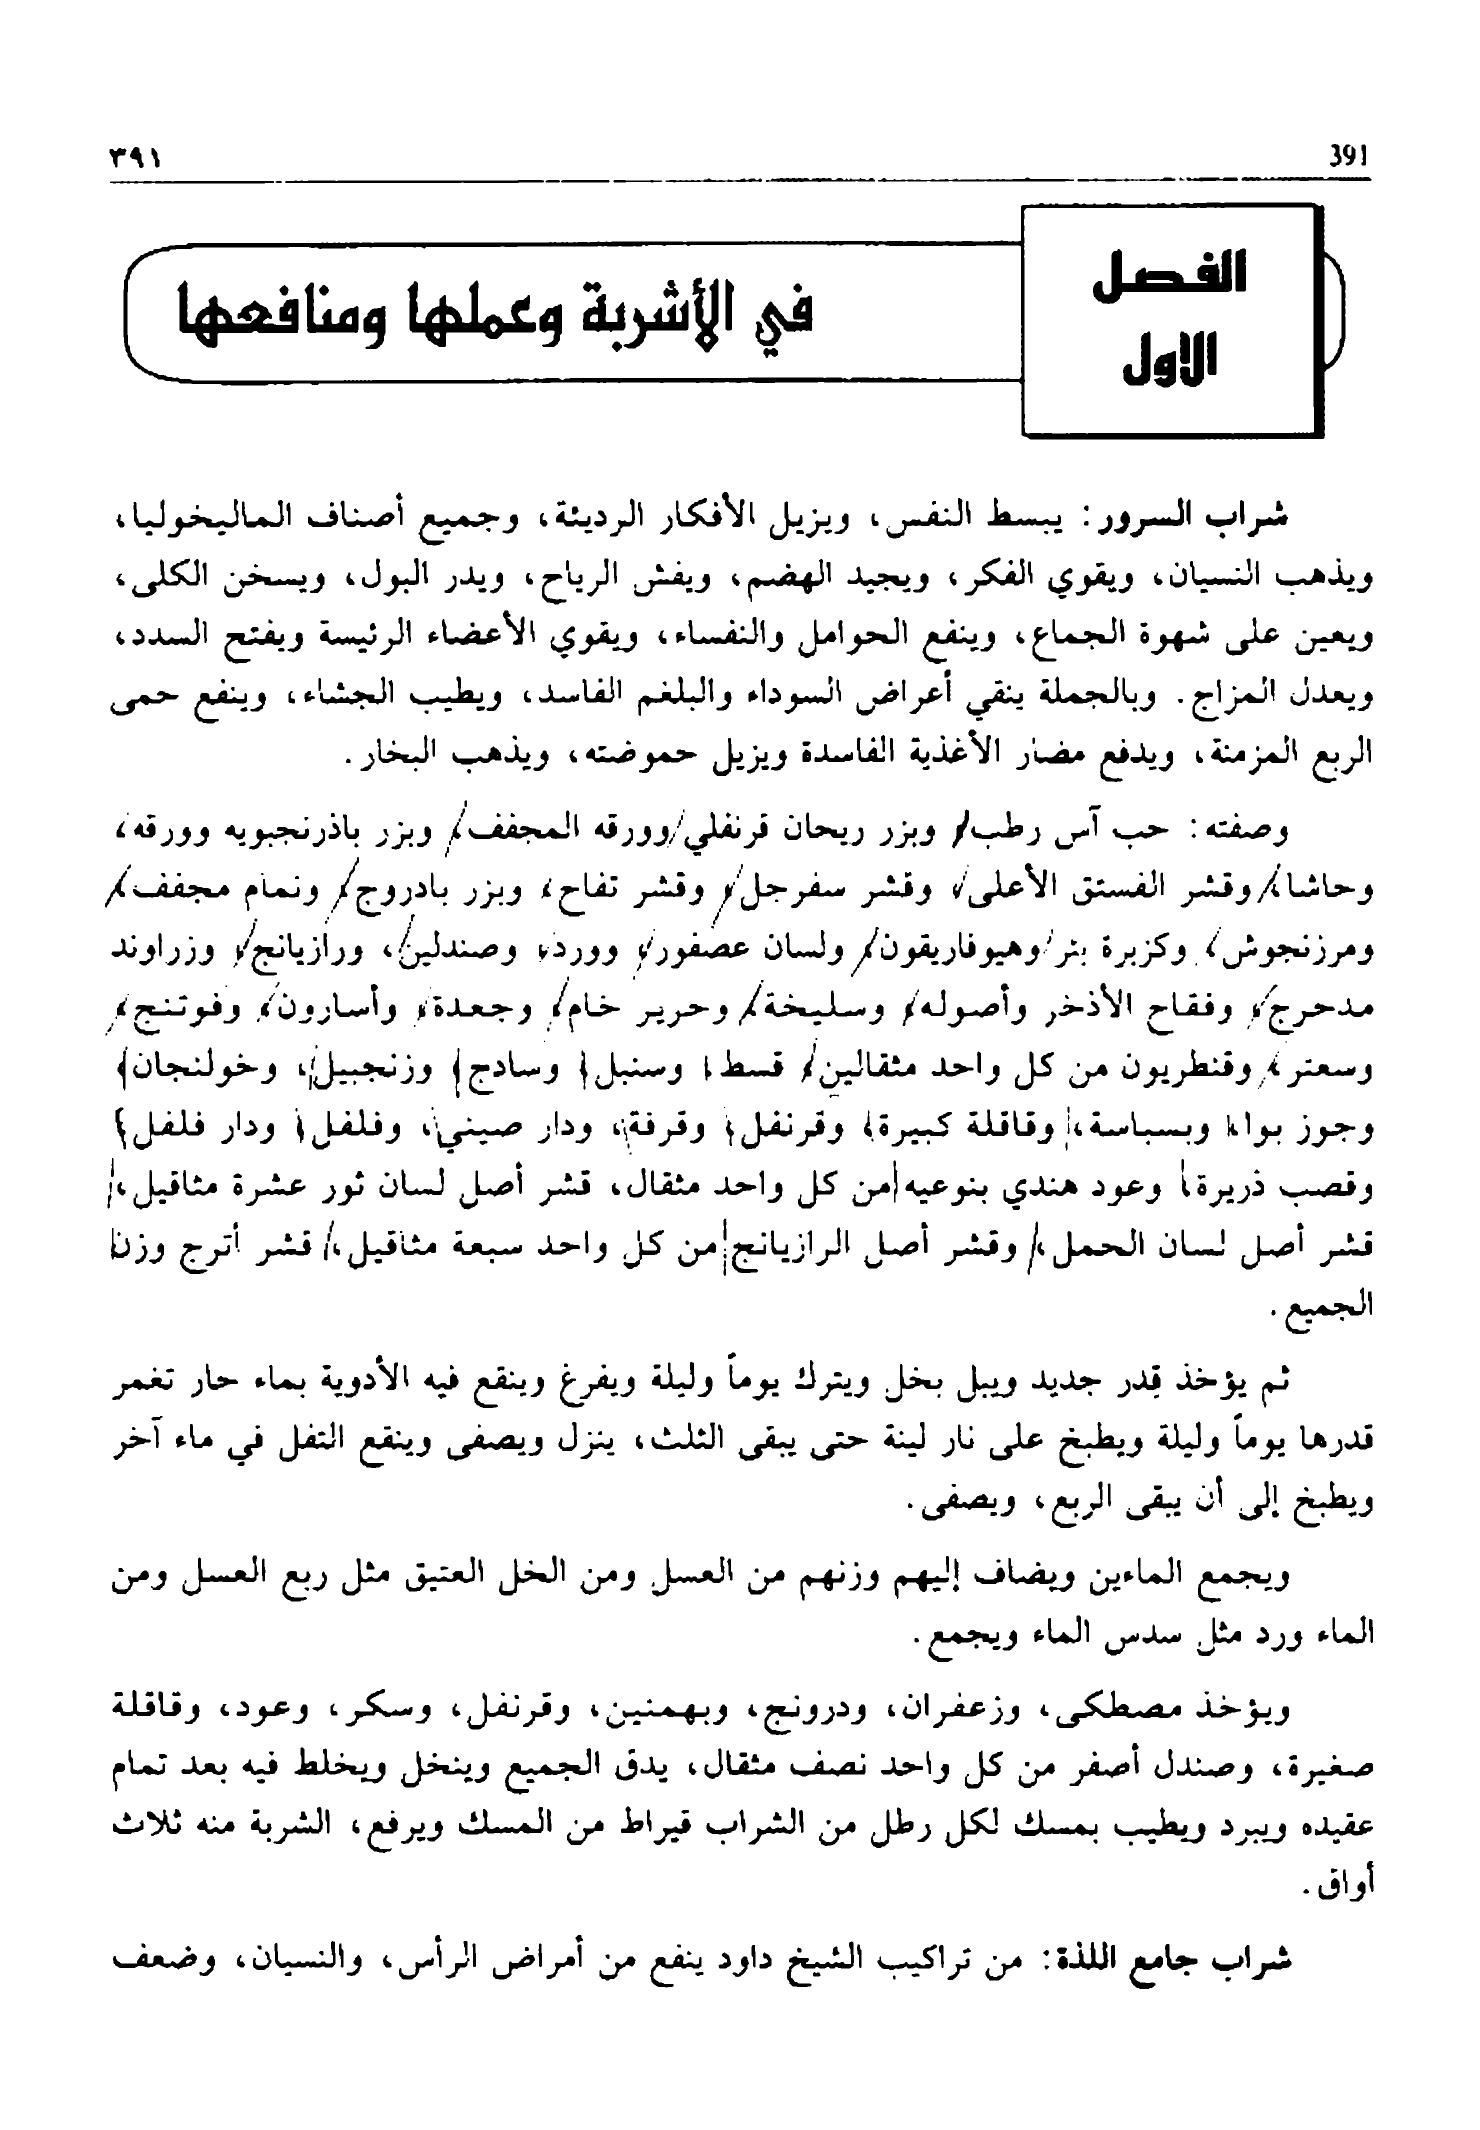 391
٣٩١
الفصل
الاول
في الأشربة وعملها ومنافعها
شراب السرور: يبسط النفس، ويزيل الأفكار الرديئة، وجميع أصناف الماليخوليا،
ويذهب النسيان، ويقوي الفكر، ويجيد الهضم، ويفش الرياح، ويدر البول، ويسخن الكلى،
ويعين على شهوة الجماع، وينفع الحوامل والنفساء، ويقوي الأعضاء الرئيسة ويفتح السدد،
ويعدل المزاج. وبالجملة ينقي أعراض السوداء والبلغم الفاسد، ويطيب الجشاء، وينفع حمى
الربع المزمنة، ويدفع مضار الأغذية الفاسدة ويزيل حموضته، ويذهب البخار.
وصفته: حب آس رطب، وبزر ريحان قرنفلي وورقه المجفف، وبزر باذرنجبويه وورقه،
وحاشا، وقشر الفستق الأعلى، وقشر سفرجل، وقشر تفاح، وبزر بادروج، ونمام مجفف،
ومرزنجوش، وكزبرة بئر وهيوفاريقون، ولسان عصفور، وورد، وصندلين، ورازيانج، وزراوند
مدحرج، وفقاح الأذخر وأصوله، وسليخة، وحرير خام، وجعدة، وأسارون، وفوتنج،
وسعتر، وقنطريون من كل واحد مثقالين، قسط، وسنبل، وسادج، وزنجبيل، وخولنجان،
وجوز بوا، وبسباسة، وقاقلة كبيرة، وقرنفل، وقرفة، ودار صيني، وفلفل، ودار فلفل،
وقصب ذريرة، وعود هندي بنوعيه من كل واحد مثقال، قشر أصل لسان ثور عشرة مثاقيل،
قشر أصل لسان الحمل، وقشر أصل الرازيانج من كل واحد سبعة مثاقيل، قشر أترج وزن
الجميع.
ثم يؤخذ قِدر جديد ويبل بخل ويترك يوماً وليلة ويفرغ وينقع فيه الأدوية بماء حار تغمر
قدرها يوماً وليلة ويطبخ على نار لينة حتى يبقى الثلث، ينزل ويصفى وينقع التفل في ماء آخر
ويطبخ إلى أن يبقى الربع، ويصفى.
ويجمع الماءين ويضاف إليهم وزنهم من العسل ومن الخل العتيق مثل ربع العسل ومن
الماء ورد مثل سدس الماء ويجمع.
ويؤخذ مصطكى، وزعفران، ودرونج، وبهمنين، وقرنفل، وسكر، وعود، وقاقلة
صغيرة، وصندل أصفر من كل واحد نصف مثقال، يدق الجميع وينخل ويخلط فيه بعد تمام
عقيده ويبرد ويطيب بمسك لكل رطل من الشراب قيراط من المسك ويرفع، الشربة منه ثلاث
أواق.
شراب جامع اللذة: من تراكيب الشيخ داود ينفع من أمراض الرأس، والنسيان، وضعف